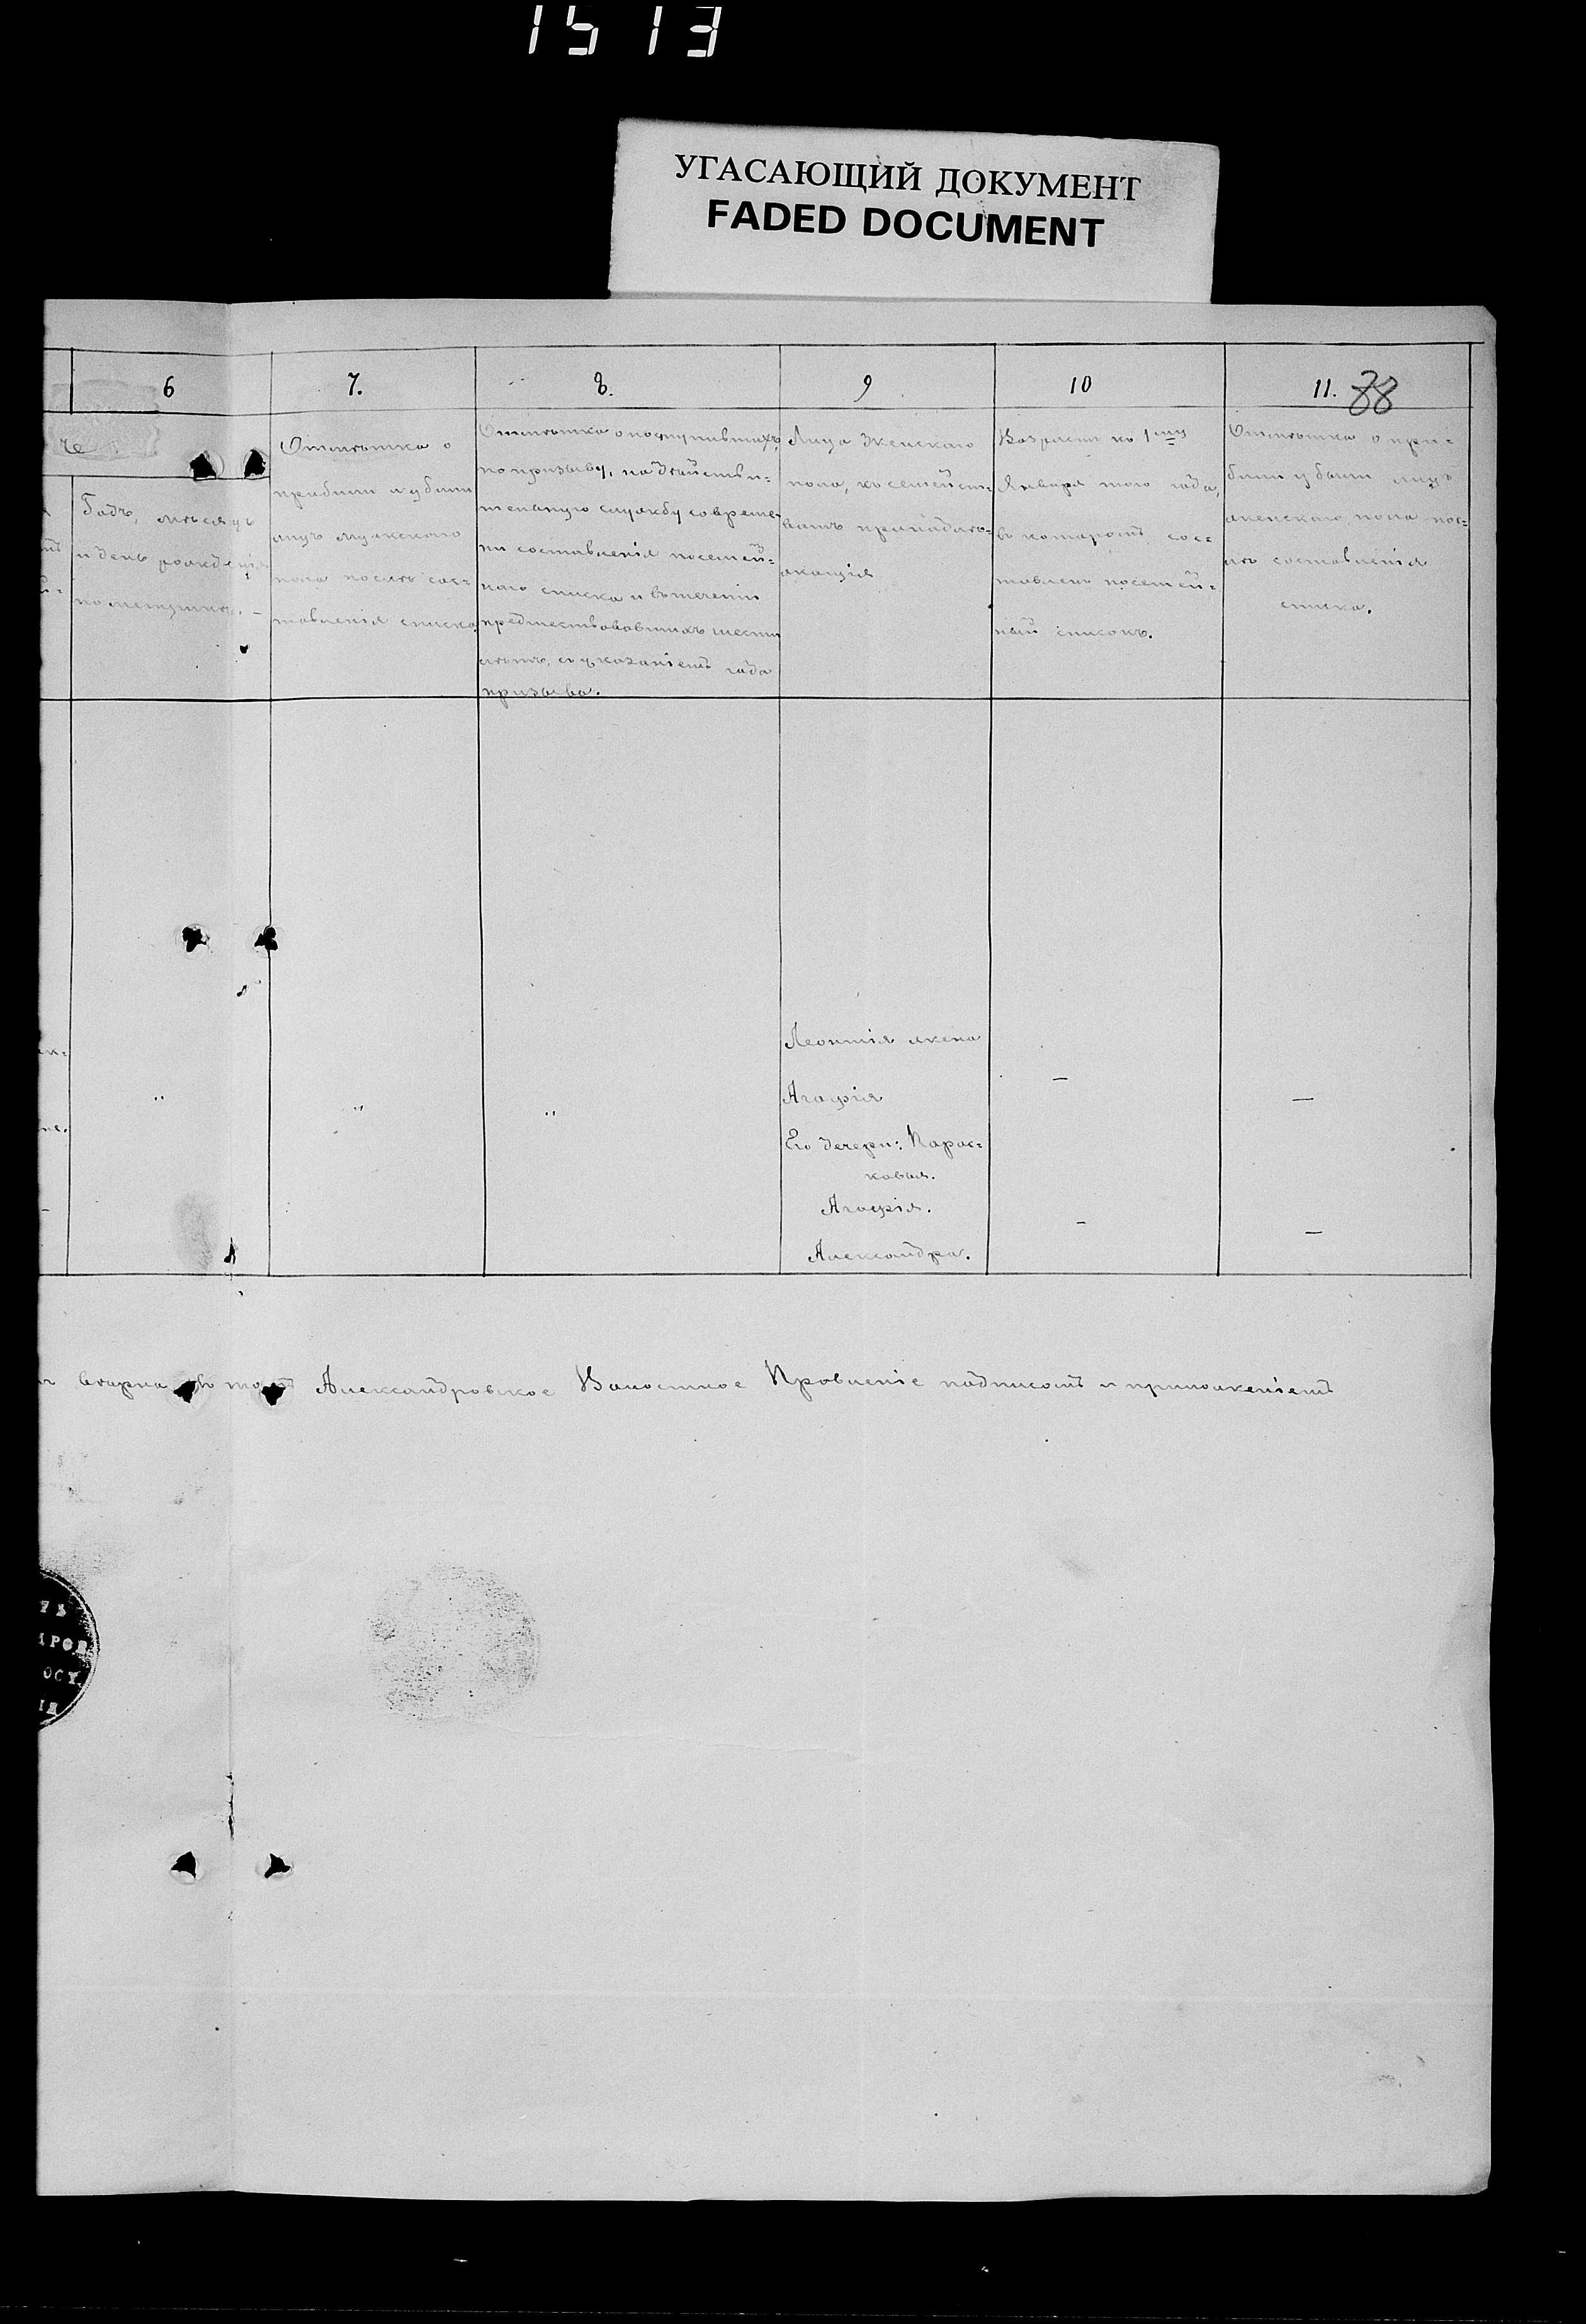 1513
УГАСАЮЩИЙ ДОКУМЕНТ
FADED DOCUMENT
6
7.
8.
9
10
11.
88
Годъ, мѣсяцъ
и день рожденія
по метрикѣ. –
Отмѣтка о
прибыли и убыли
лицъ мужскаго
пола послѣ сос-
тавленія списка.
Отмѣтка о поступившихъ,
по призыву, на дѣйстви-
тельную службу со време-
ни составленія посемей-
наго списка и въ теченіи
предшествовавшихъ шести
лѣтъ, съ указаніемъ года
призыва.
Лица женскаго
пола, къ семейст-
вамъ принадле-
жащія
Возрастъ къ 1му
Января того года,
въ которомъ сос-
тавленъ посемей-
ный списокъ.
Отмѣтка о при-
были убыли лицъ
женскаго пола пос-
лѣ составленія
списка.
Леонтія жена
Агафія
Его дочери: Парас-
ковья.
Агафія.
Александра.
Александровское Волостное Правленіе подписомъ и приложеніемъ
АРОВ
ОСТ.
ІЯ